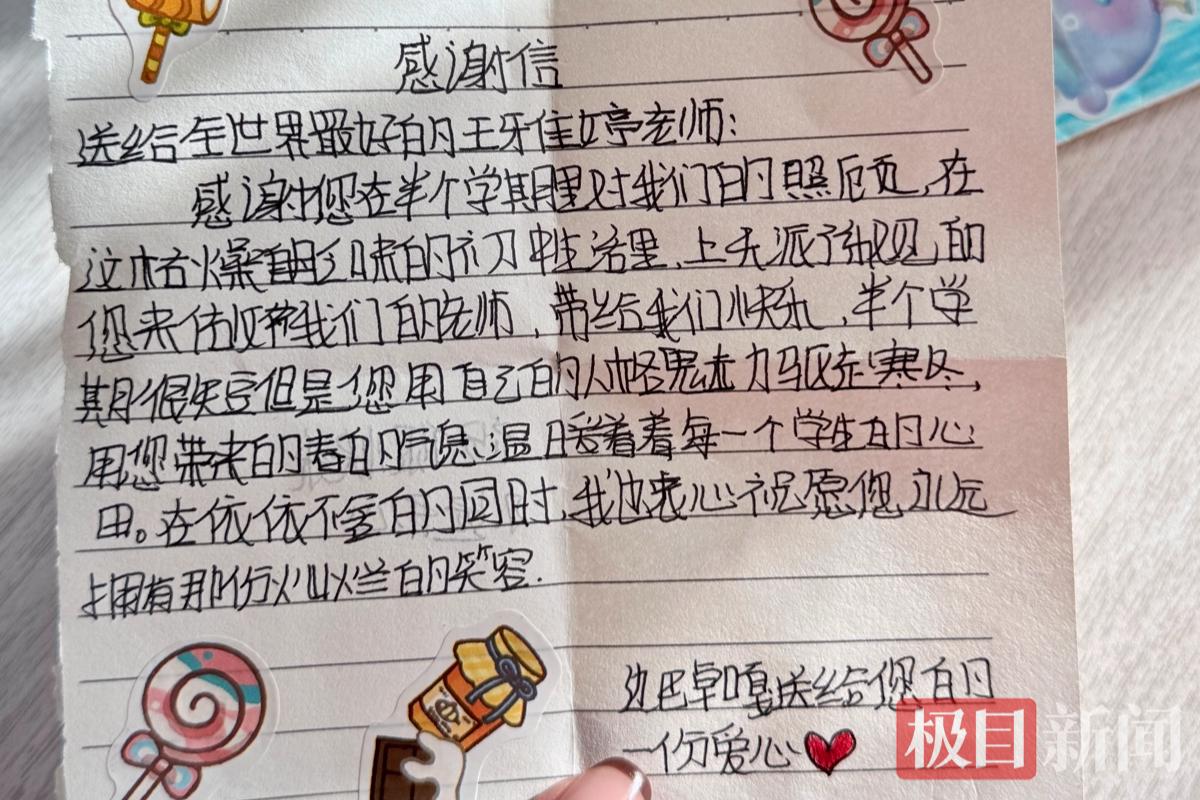 感谢信
送给全世界最好的王雅婷老师:
感谢您在半个学期里对我们的照顾,在
这枯燥乏味的初中生活里,上天派了
您来做我们的老师,带给我们快乐,半个学
期很短但是您用自己的人格魅力驱走寒冬,
用您带来的春的气息温暖着每一个学生的心
田。在依依不舍的同时,我也衷心祝愿您永远
拥有那份灿烂的笑容.
边巴卓嘎送给您的
一份爱心
极目新闻